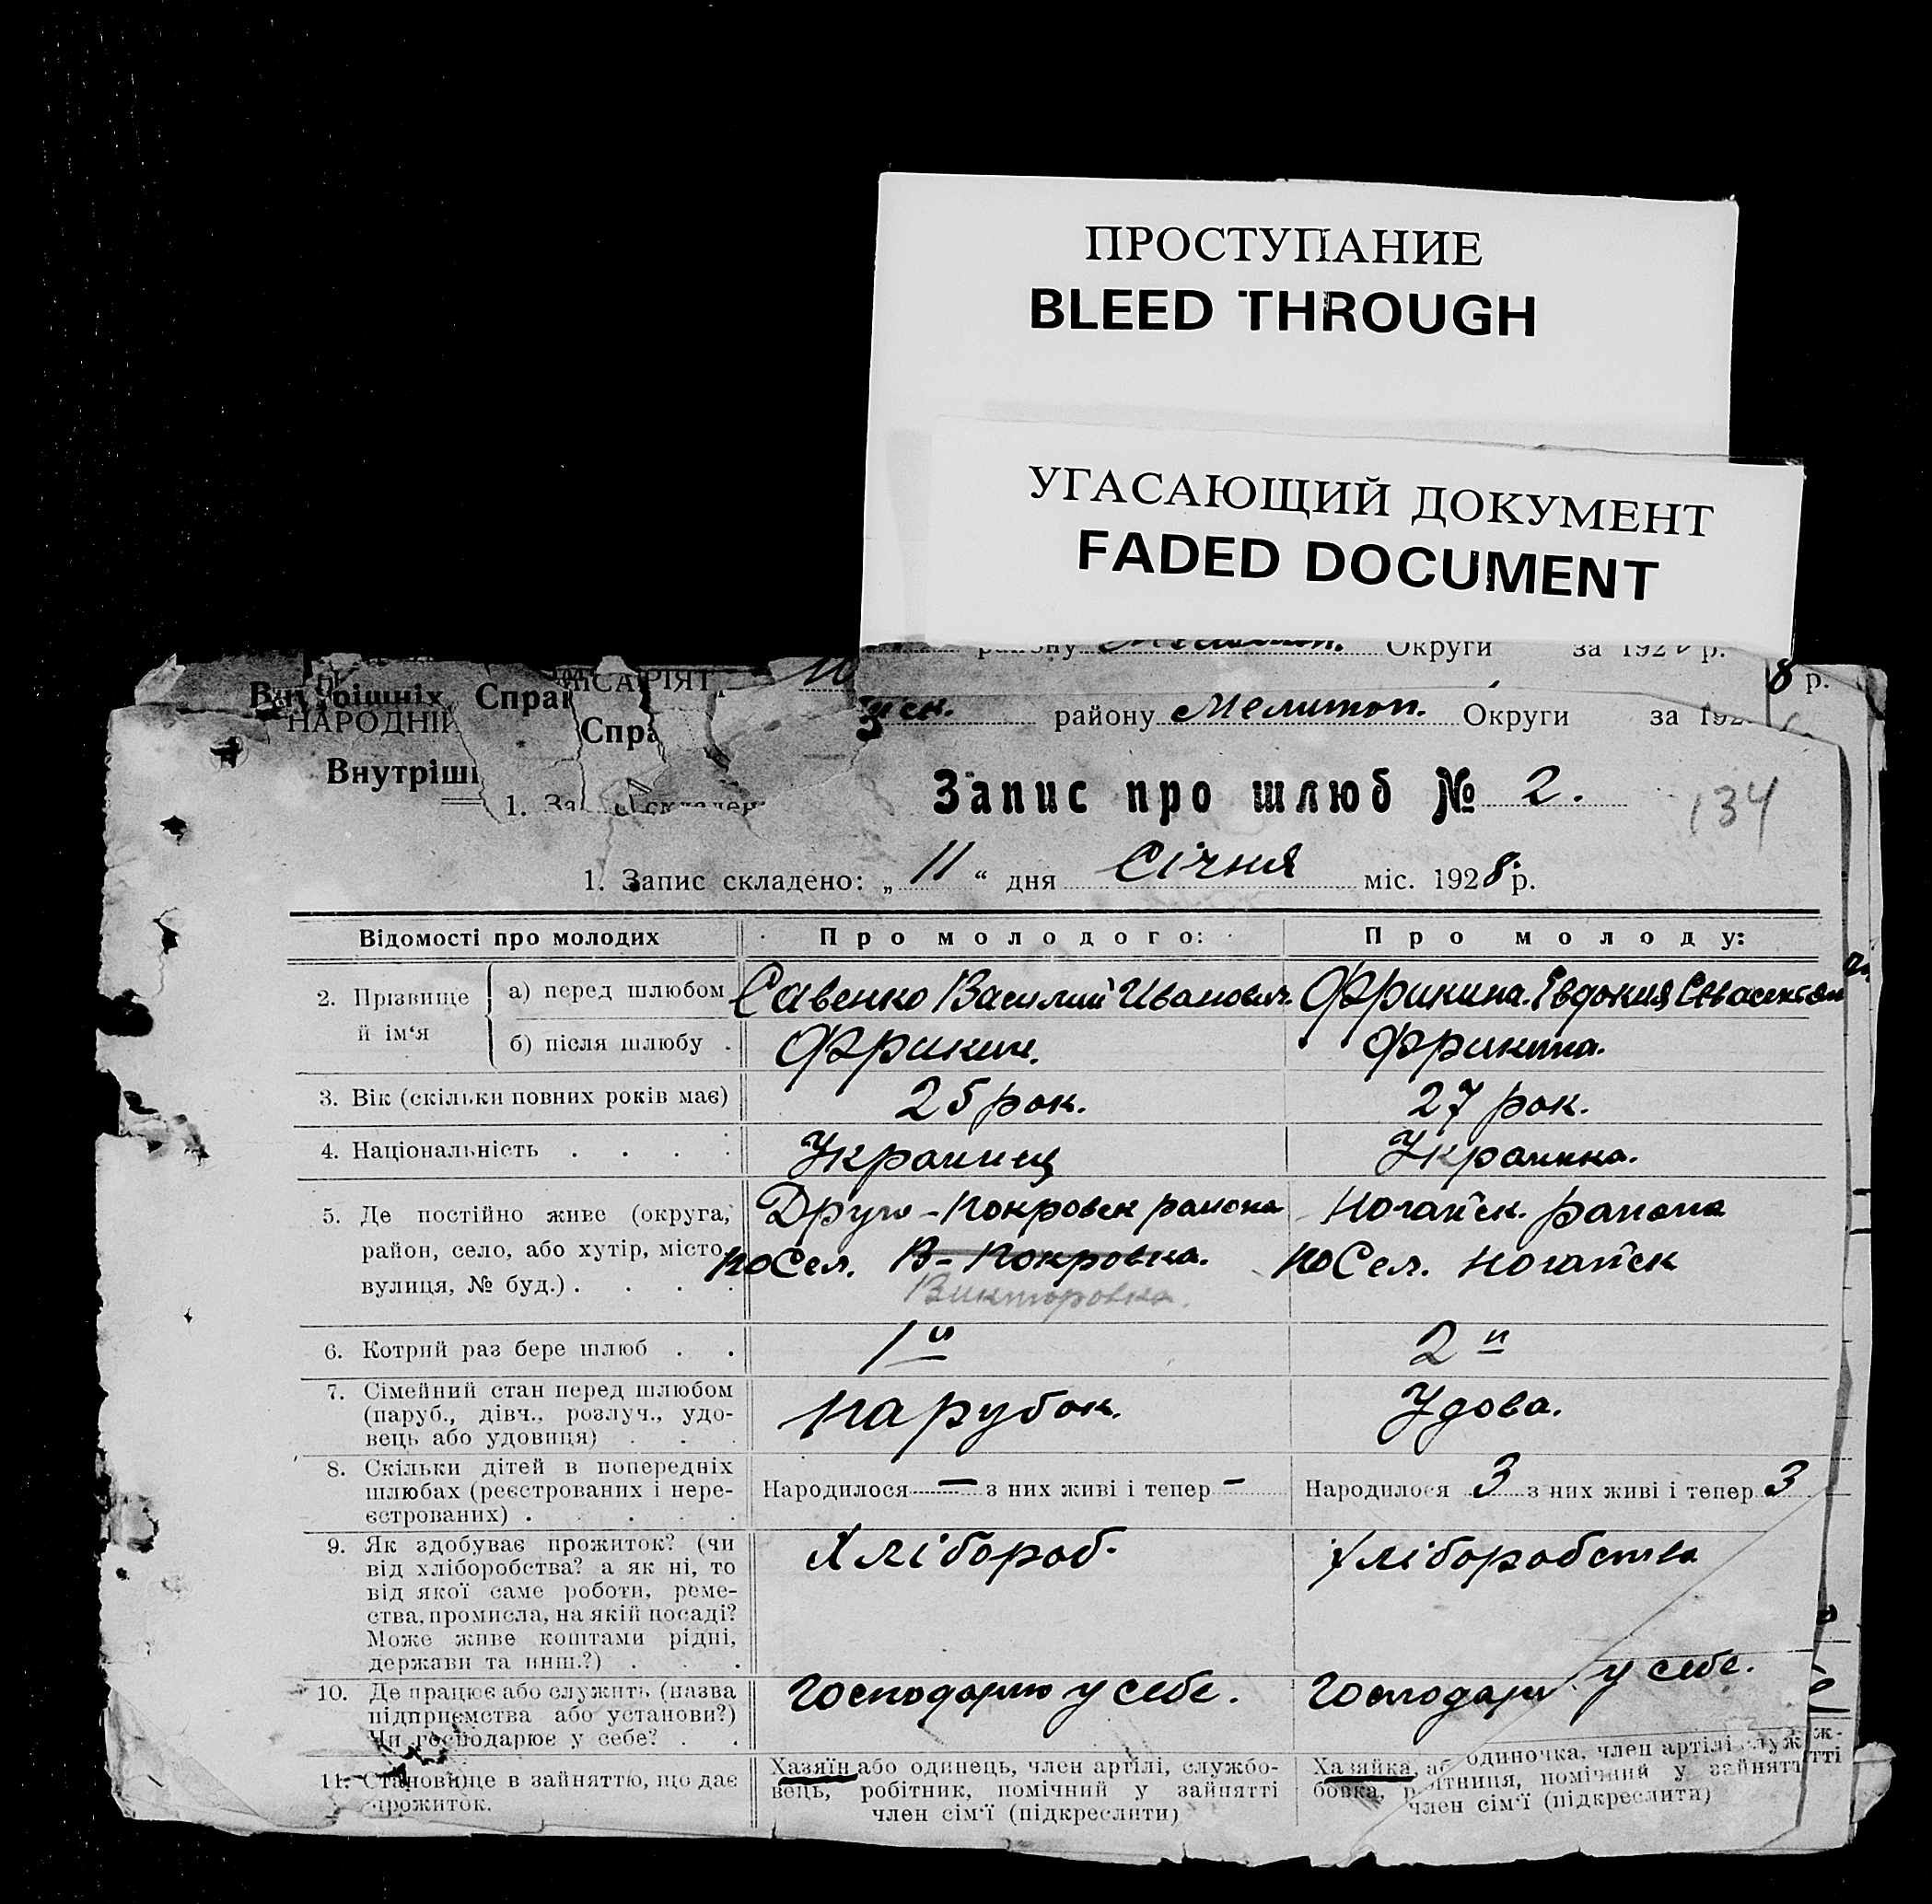 ПРОСТУПАНИЕ
BLEED THROUGH
УГАСАЮЩИЙ ДОКУМЕНТ
FADED DOCUMENT
району Округи за 192 р.
8 р.
Внутрішніх Справ
НАРОДНІЙ
Внутріш
району Мелитоп. Округи за 192
1. Запис складен
Запис про шлюб № 2.
134
1. Запис складено: „ 11 “ дня Січня міс. 1928 р.
Відомості про молодих
Про молодого:
Про молоду:
2. Прізвище й ім‘я
а) перед шлюбом
Савенко Василий Иванович.
Фрикина. Евдокия
б) після шлюбу .
Фрикин.
Фрикина.
3. Вік (скільки повних років має)
25 рок.
27 рок.
4. Національність . . . .
Украинец
Украинка.
5. Де постійно живе (округа,
район, село, або хутір, місто,
вулиця, № буд.) . . . .
Друго-Покровск района
поСел. В-Покровка.
Викторовка.
Ногайск. района
поСел. Ногайск
6. Котрий раз бере шлюб . .
1й
2й
7. Сімейний стан перед шлюбом
(паруб., дівч., розлуч., удо-
вець або удовиця) . . .
парубок.
Удова.
8. Скільки дітей в попередніх
шлюбах (реєстрованих і нере-
єстрованих) . . . . .
Народилося — з них живі і тепер -
Народилося 3 з них живі і тепер 3
9. Як здобуває прожиток? (чи
від хліборобства? а як ні, то
від якої саме роботи, реме-
ства, промисла, на якій посаді?
Може живе коштами рідні,
держави та инш.?) . . .
Хлібороб.
Хліборобство
10. Де працює або служить (назва
підприємства або установи?)
Чи господарює у себе? . .
Господарю у себе.
Господарю у себе.
11. Становище в зайняттю, що дає
прожиток.
Хазяїн або одинець, член артілі, службо-
вець, робітник, помічний у зайнятті
член сім‘ї (підкреслити)
Хазяйка, аб одиночка, член артілі служ
бовка, робітниця, помічний у зайнятті
член сім‘ї (підкреслити)